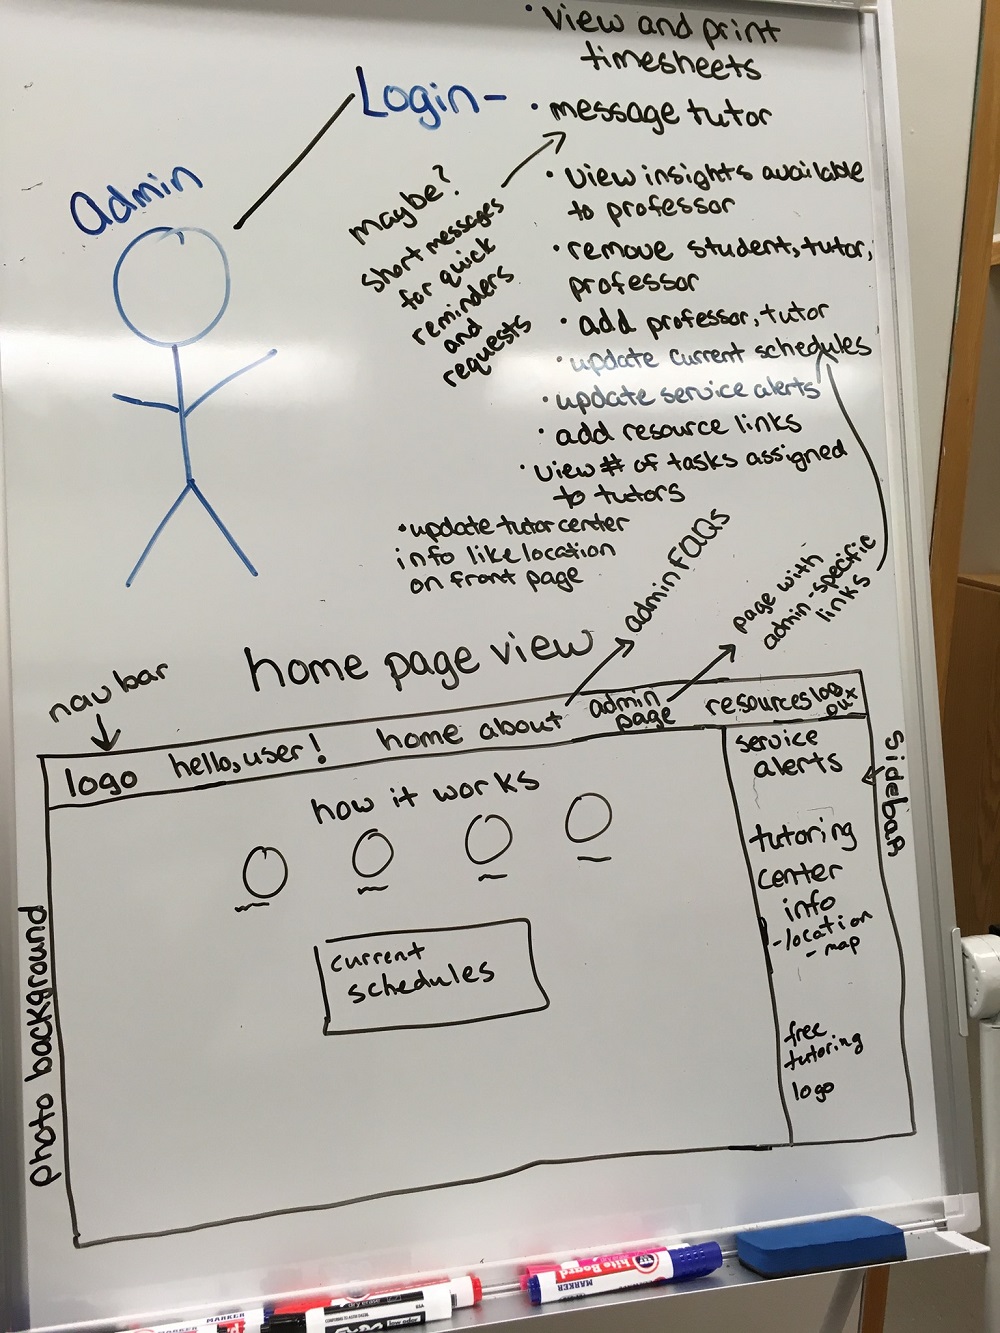 • view and print
timesheets
Login -
• message tutor
Admin
maybe?
short messages
for quick
reminders
and
requests
• view insights available
to professor
• remove student, tutor,
professor
• add professor, tutor
• update current schedules
• update service alerts
• add resource links
• view # of tasks assigned
to tutors
• update tutor center
info like location
on front page
admin FAQs
page with
admin-specific
links
home page view
nav bar
logo
hello, user!
home
about
admin
page
resources
log
out
how it works
current
schedules
service
alerts
tutoring
center
info
- location
- map
free
tutoring
logo
sidebar
photo background
MARKER
White Board
MARKER